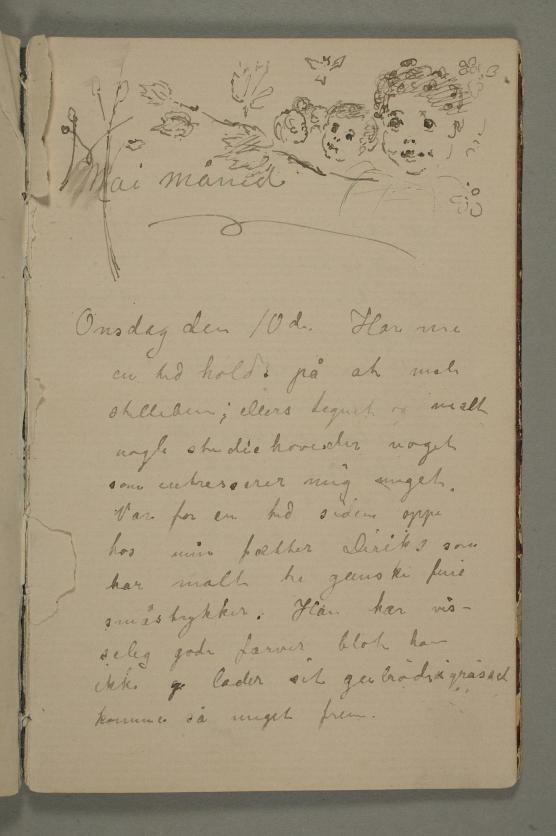 Mai måned
Onsdag den 10de. Har nu
en tid holdt på at male
stilleben; ellers tegnet og malt
nogle studiehoveder noget
som intresserer mig meget.
Var for en tid siden oppe
hos min fætter Diriks som
har malt tre ganske fine
småstykker. Han har vis-
selig gode farver blot han
ikke lader sit
komme så meget frem.